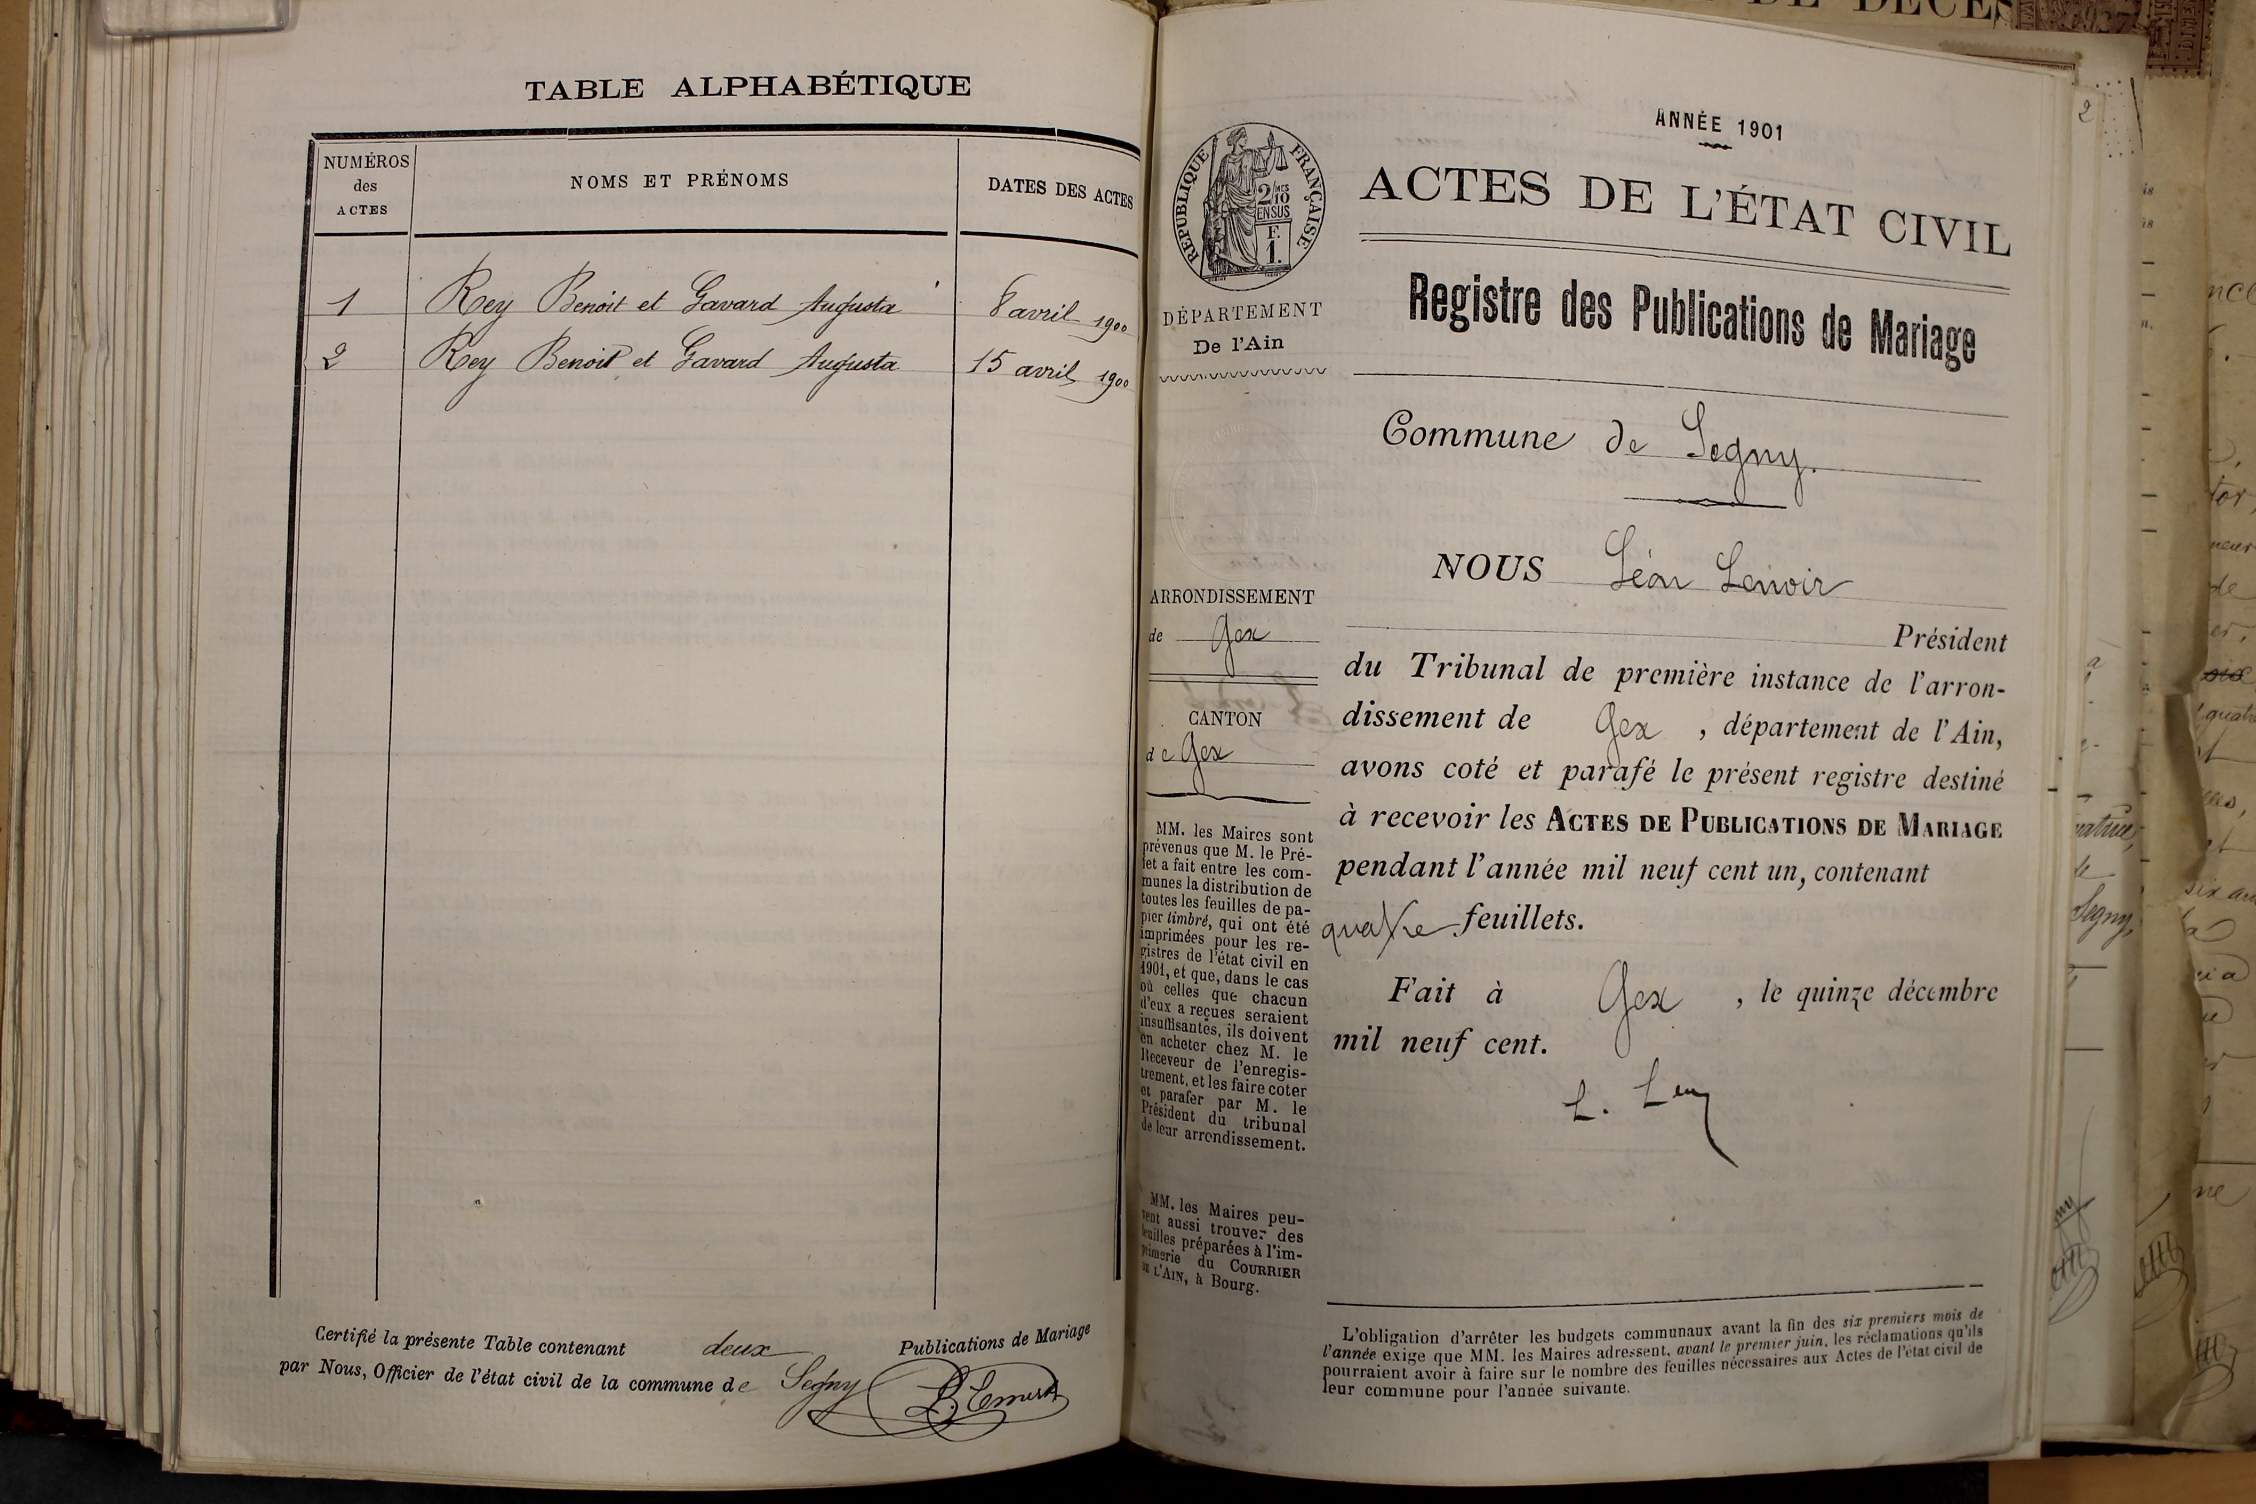 TABLE ALPHABÉTIQUE
NUMÉROS
des
ACTES
NOMS ET PRÉNOMS
DATES DES ACTES
1 Rey Benoit et Gavard Augusta 8 avril 1900
2 Rey Benoit et Gavard Augusta 15 avril 1900
Certifié la présente Table contenant deux Publications de Mariage
par Nous, Officier de l'état civil de la commune de Segny
ANNÉE 1901
ACTES DE L'ÉTAT CIVIL
Registre des Publications de Mariage
Commune de Segny.
NOUS Léon Lenoir
Président
du Tribunal de première instance de l'arron-
dissement de Gex, département de l'Ain,
avons coté et parafé le présent registre destiné
à recevoir les ACTES DE PUBLICATIONS DE MARIAGE
pendant l'année mil neuf cent un, contenant
quatre feuillets.
Fait à Gex, le quinze décembre
mil neuf cent.
RÉPUBLIQUE FRANÇAISE
2/10 MES
EN SUS
F.
1.
DÉPARTEMENT
De l'Ain
ARRONDISSEMENT
de Gex
CANTON
de Gex
MM. les Maires sont
prévenus que M. le Pré-
fet a fait entre les com-
munes la distribution de
toutes les feuilles de pa-
pier timbré, qui ont été
imprimées pour les re-
gistres de l'état civil en
1901, et que, dans le cas
où celles que chacun
d'eux a reçues seraient
insuffisantes, ils doivent
en acheter chez M. le
Receveur de l'enregis-
trement, et les faire coter
et parafer par M. le
Président du tribunal
de leur arrondissement.
MM. les Maires peu-
vent aussi trouver des
feuilles préparées à l'im-
primerie du COURRIER
DE L'AIN, à Bourg.
L'obligation d'arrêter les budgets communaux avant la fin des six premiers mois de
l'année exige que MM. les Maires adressent, avant le premier juin, les réclamations qu'ils
pourraient avoir à faire sur le nombre des feuilles nécessaires aux Actes de l'état civil de
leur commune pour l'année suivante.
2
DE DÉCÈS
Segny,